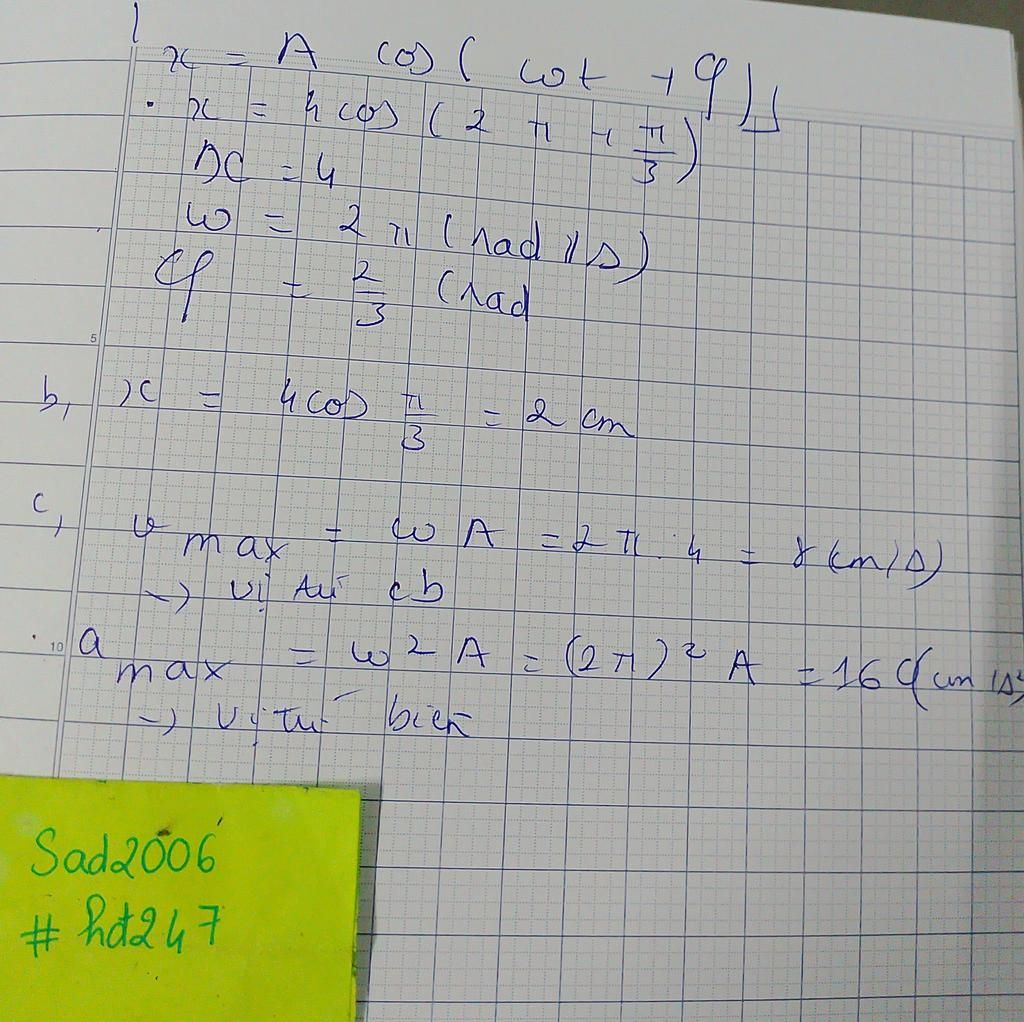 1
x = A cos( ωt + φ)
. x = 4cos (2 π + π/3)
x = 4
ω = 2 π (rad/s)
φ = 2/3 (rad
5
b, x = 4cos π/3 = 2 cm
c, v max = ω A = 2 π . 4 = 8 (cm/s)
→ vị trí cb
10
a max = ω2 A = (2π)² A = 16 (cm/s²
→ vị trí biên
Sad2006
# hđ247